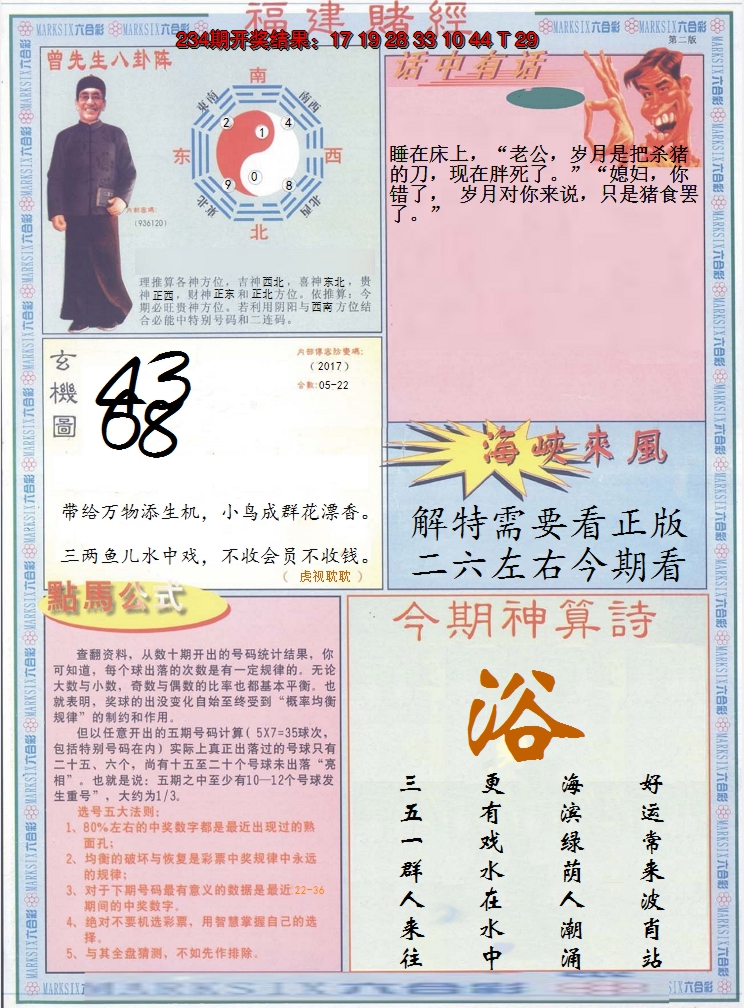 福建賭經
234期开奖结果: 17 19 28 33 10 44 T 29
第二版
曾先生八卦阵
南
东南
西南
2
1
4
东
西
9
0
8
東北
西北
北
内部密碼:
(936120)
理推算各神方位，吉神西北，喜神东北，贵
神正西，财神正东和正北方位。依推算：今
期必旺贵神方位。若利用阴阳与西南方位结
合必能中特别号码和二连码。
话中有话
睡在床上，“老公，岁月是把杀猪
的刀，现在胖死了。”“媳妇，你
错了， 岁月对你来说，只是猪食罢
了。”
玄機圖
43
68
内部傳密防僞碼:
(2017)
合数:05-22
带给万物添生机，小鸟成群花漂香。
三两鱼儿水中戏，不收会员不收钱。
（ 虎视耽耽 ）
海峽來風
解特需要看正版
二六左右今期看
點馬公式
查翻资料，从数十期开出的号码统计结果，你
可知道，每个球出落的次数是有一定规律的。无论
大数与小数，奇数与偶数的比率也都基本平衡。也
就表明，奖球的出没变化自始至终受到“概率均衡
规律”的制约和作用。
但以任意开出的五期号码计算( 5X7=35球次，
包括特别号码在内) 实际上真正出落过的号球只有
二十五、六个，尚有十五至二十个号球未出落“亮
相”。也就是说：五期之中至少有10—12个号球发
生重号”，大约为1/3。
选号五大法则：
1、80%左右的中奖数字都是最近出现过的熟
面孔；
2、均衡的破坏与恢复是彩票中奖规律中永远
的规律；
3、对于下期号码最有意义的数据是最近22-36
期间的中奖数字。
4、绝对不要机选彩票，用智慧掌握自己的选
择。
5、与其全盘猜测，不如先作排除。
今期神算詩
浴
好运常来波肖站
海滨绿荫人潮涌
更有戏水在水中
三五一群人来往
MARKSIX六合彩